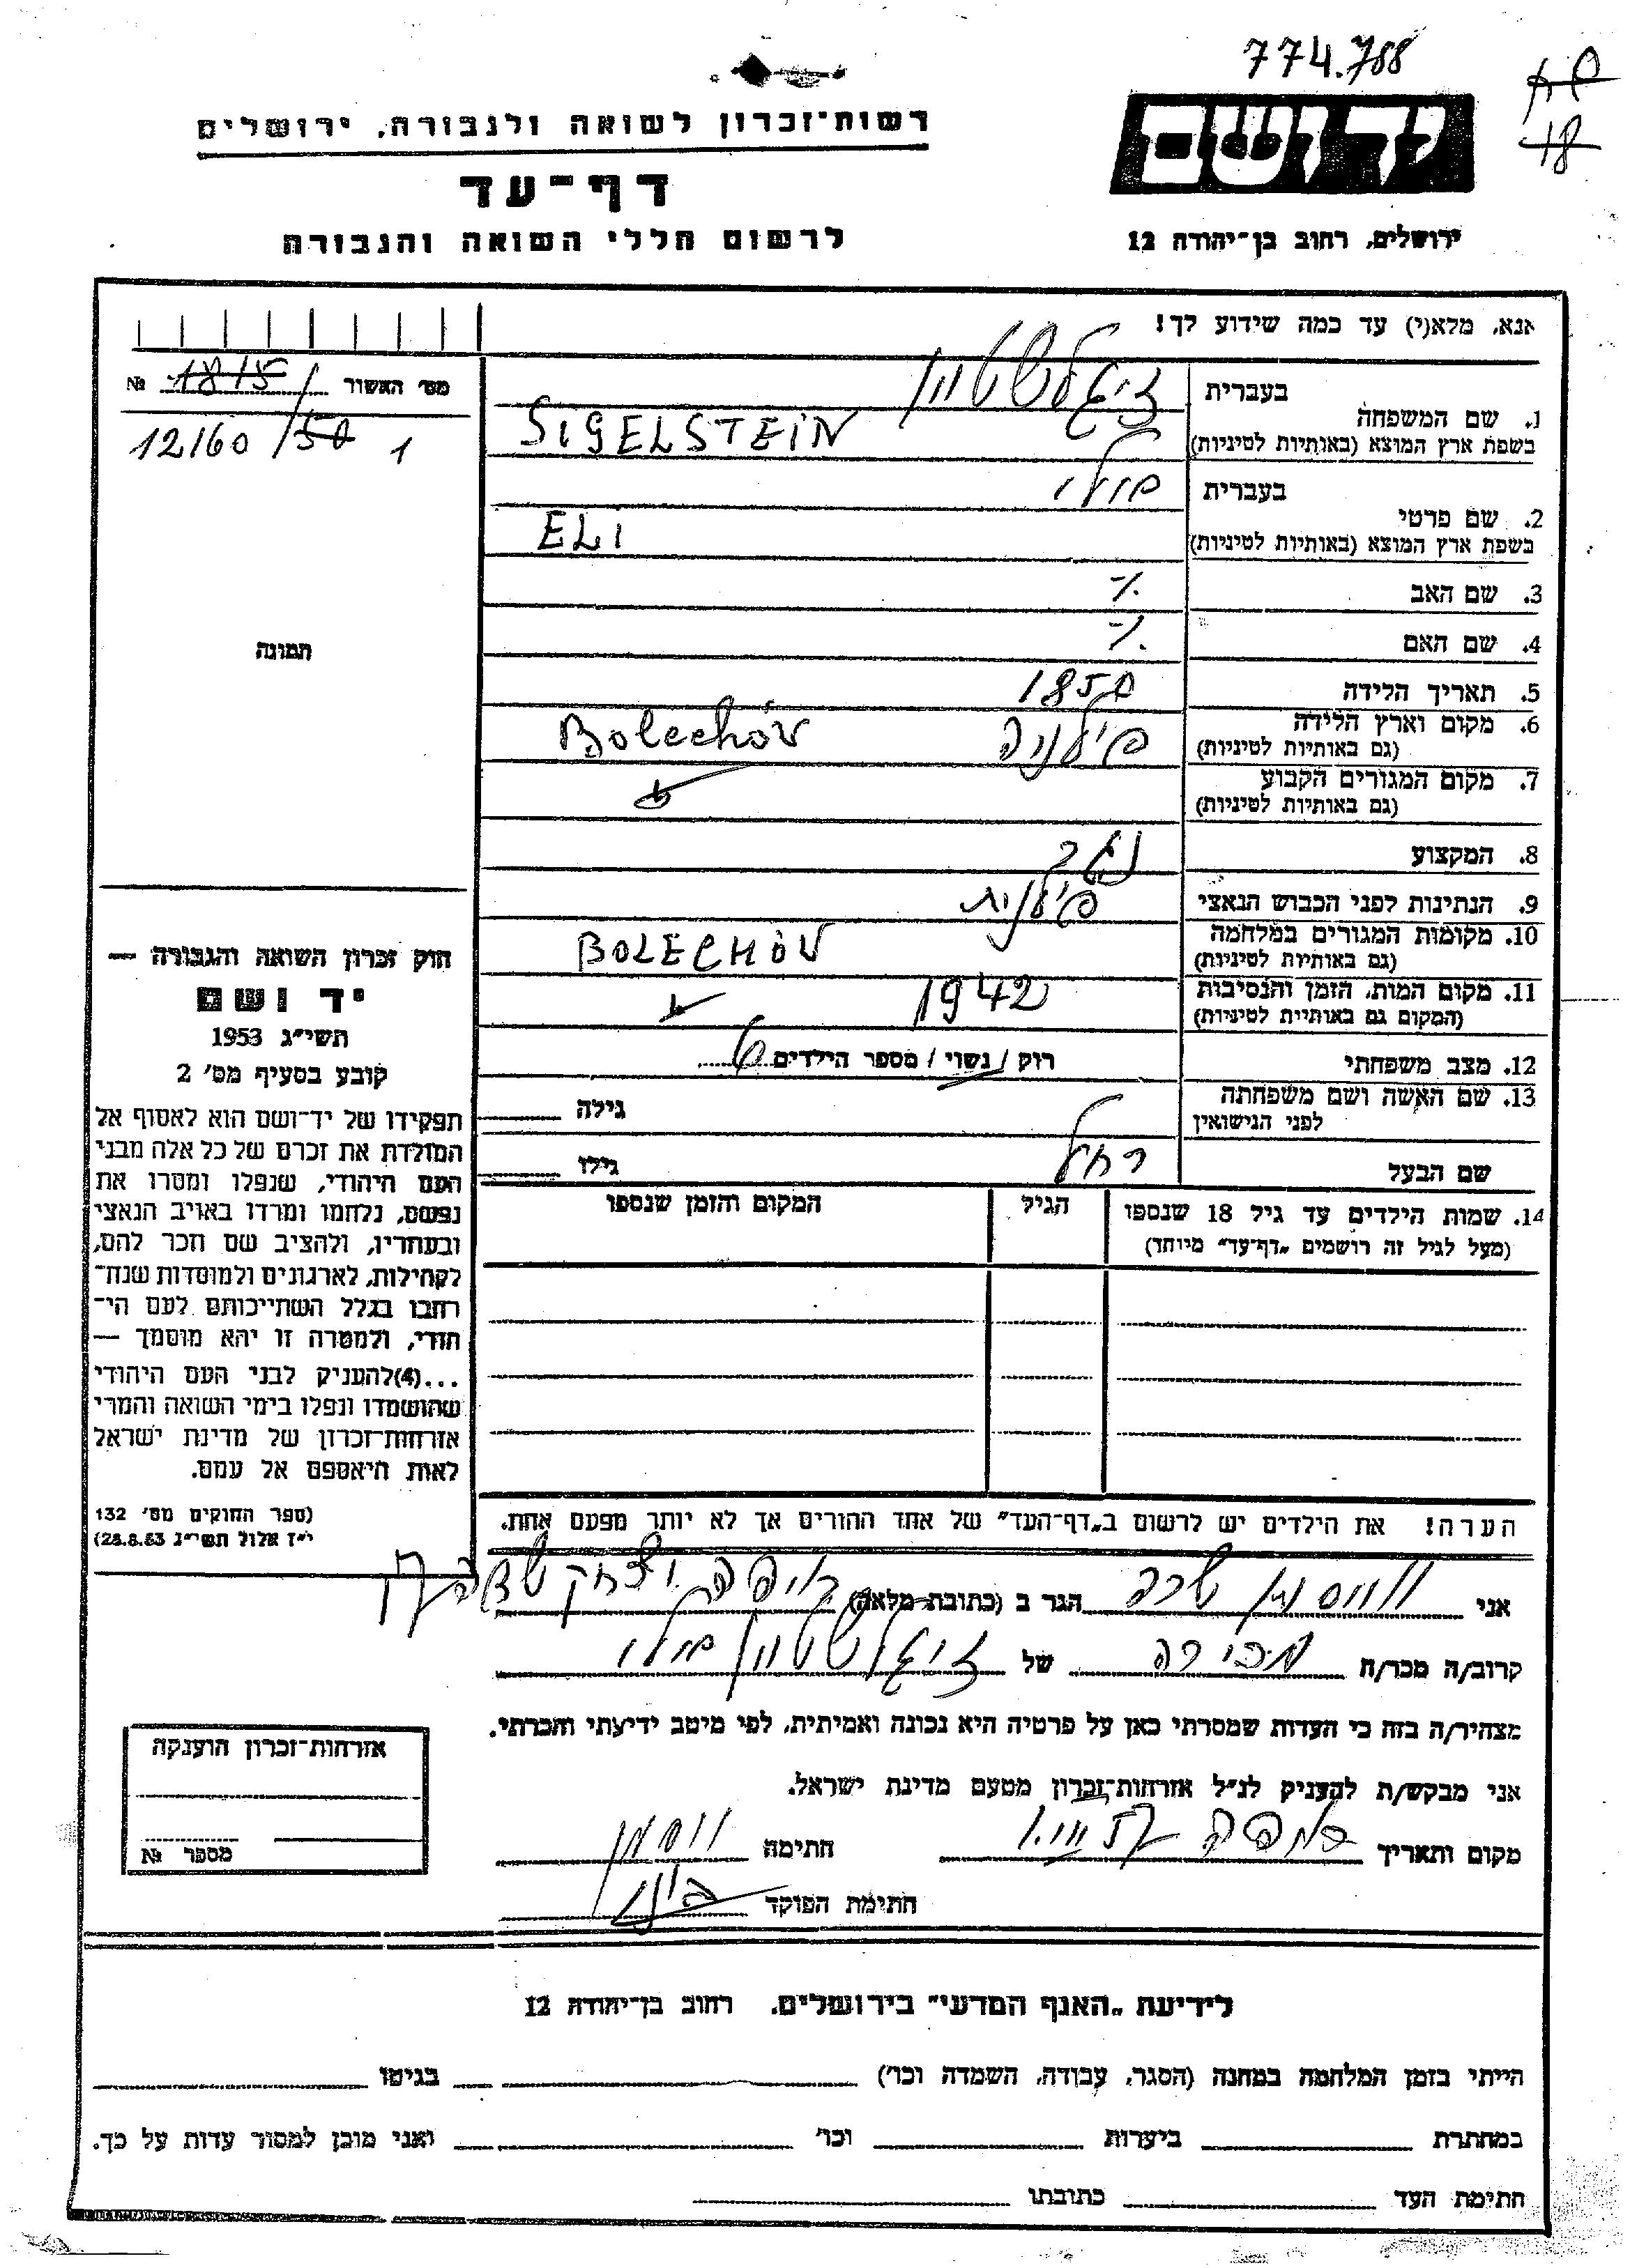 774.788
18
רשות־זכרון לשואה ולגבורה, ירושלים
יד ושם
דף־עד
לרשום חללי השואה והגבורה
ירושלים, רחוב בן־יהודה 12
אנא, מלא(י) עד כמה שידוע לך!
מס׳ האשור 1815 №
12160/50 1
1. שם המשפחה
בעברית זיגלשטיין
בשפת ארץ המוצא (באותיות לטיניות) SIGELSTEIN
2. שם פרטי
בעברית
בשפת ארץ המוצא (באותיות לטיניות) ELI
3. שם האב ٪
4. שם האם ٪
תמונה
5. תאריך הלידה 1850
6. מקום וארץ הלידה פולניה Bolechóv
(גם באותיות לטיניות)
7. מקום המגורים הקבוע
(גם באותיות לטיניות)
8. המקצוע נגר
9. הנתינות לפני הכבוש הנאצי פולנית
10. מקומות המגורים במלחמה BOLECHÓV
(גם באותיות לטיניות)
11. מקום המות, הזמן והנסיבות 1942
(המקום גם באותיות לטיניות)
12. מצב משפחתי רוק / נשוי / מספר הילדים 6
13. שם האשה ושם משפחתה גילה
לפני הנישואין
שם הבעל רחל גילו
14. שמות הילדים עד גיל 18 שנספו הגיל המקום והזמן שנספו
(מעל לגיל זה רושמים „דף־עד״ מיוחד)
חוק זכרון השואה והגבורה —
יד ושם
תשי״ג 1953
קובע בסעיף מס׳ 2
תפקידו של יד־ושם הוא לאסוף אל
המולדת את זכרם של כל אלה מבני
העם היהודי, שנפלו ומסרו את
נפשם, נלחמו ומרדו באויב הנאצי
ובעוזריו, ולהציב שם וזכר להם,
לקהילות, לארגונים ולמוסדות שנח־
רבו בגלל השתייכותם לעם הי־
הודי, ולמטרה זו יהא מוסמך —
...(4)להעניק לבני העם היהודי
שהושמדו ונפלו בימי השואה והמרי
אזרחות־זכרון של מדינת ישראל
לאות היאספם אל עמם.
(ספר החוקים מס׳ 132
י״ז אלול תשי״ג 28.8.53)
הערה! את הילדים יש לרשום ב„דף־העד״ של אחד ההורים אך לא יותר מפעם אחת.
אני שרה הגר ב (כתובת מלאה) חיפה יצחק
קרוב/ה מכר/ה מכירה של זיגלשטיין
מצהיר/ה בזה כי העדות שמסרתי כאן על פרטיה היא נכונה ואמיתית, לפי מיטב ידיעתי והכרתי.
אני מבקש/ת להעניק לנ״ל אזרחות־זכרון מטעם מדינת ישראל.
מקום ותאריך חיפה חתימה
חתימת הפוקד
אזרחות־זכרון הוענקה
מספר №
לידיעת „האגף המדעי״ בירושלים, רחוב בן־יהודה 12
הייתי בזמן המלחמה במחנה (הסגר, עבודה, השמדה וכו׳) בגיטו
במחתרת ביערות וכו׳ ואני מוכן למסור עדות על כך.
חתימת העד כתובתו